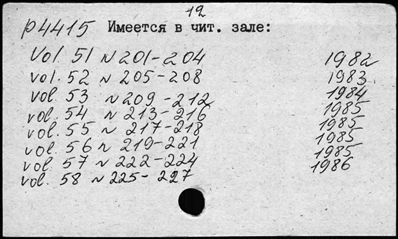 12
p4415 Имеется в чит. зале:
Vol. 51 N 201-204 1982
vol. 52 N 205-208 1983
vol. 53 N 209-212 1984
vol. 54 N 213-216 1985
vol. 55 N 217-218 1985
vol. 56 N 219-221 1985
vol. 57 N 222-224 1985
vol. 58 N 225-227 1986